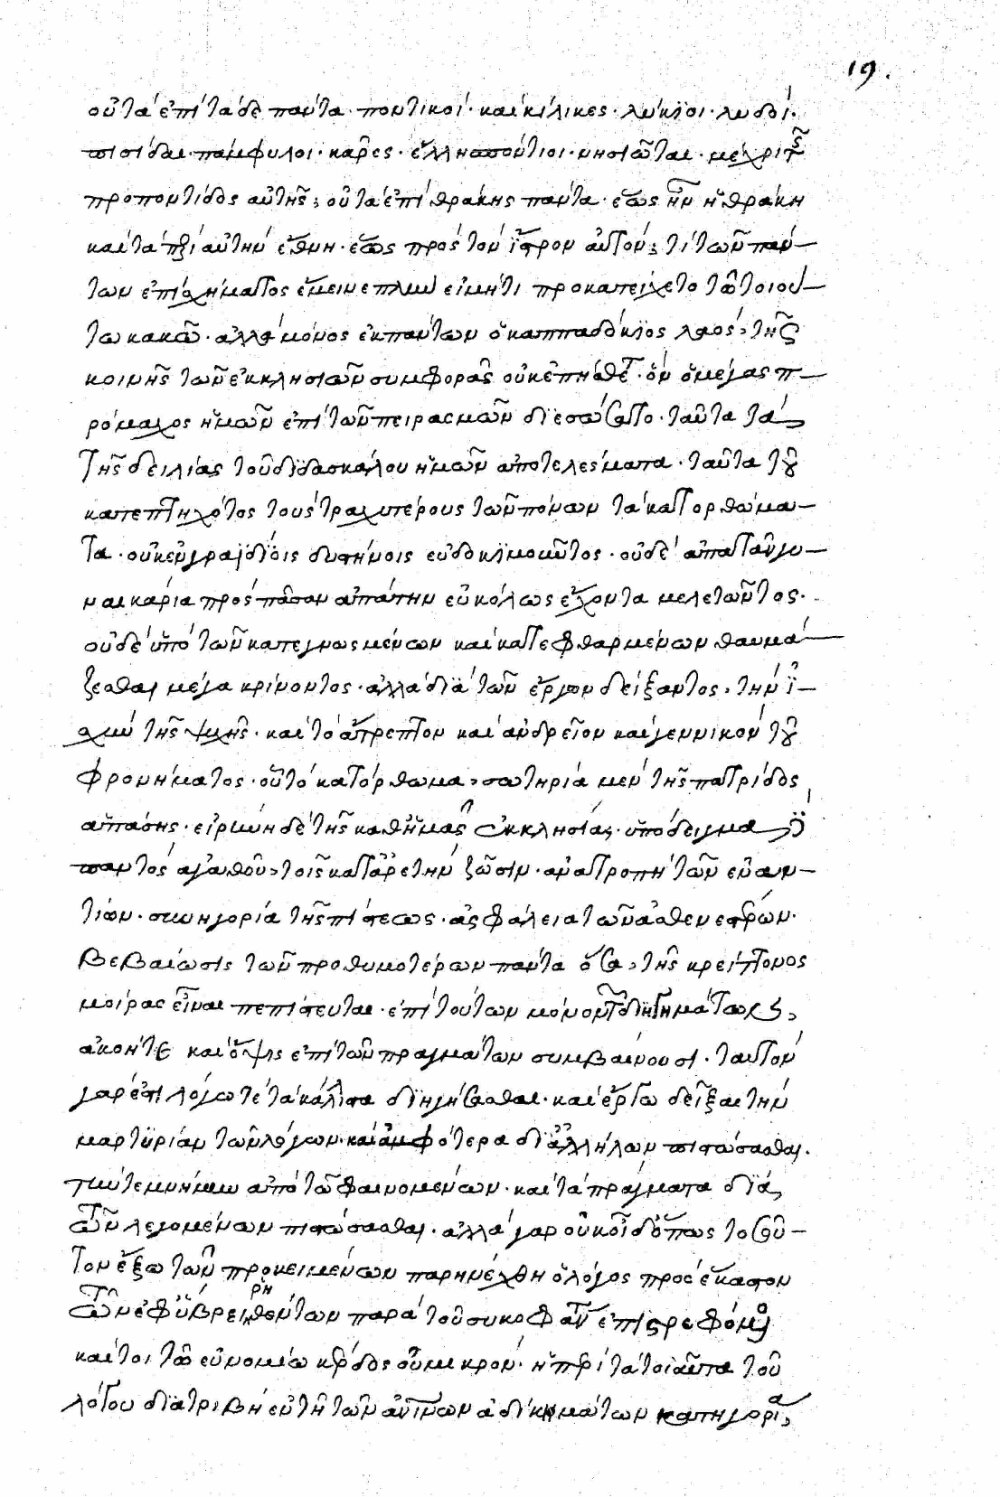 19.
οὐ τὰ ἐπὶ τάδε πάντα· ποντικοί· καὶ κίλικες· λύκϊοι· λυδοί·
πισίδαι· πάμφυλοι· κᾶρες· ἑλλησπόντιοι· νησιῶται· μέχρι τῆς
προποντίδος αὐτῆς; οὐ τὰ ἐπὶ θράκης πάντα· ἕως ἦν ἡ θράκη
καὶ τὰ περὶ αὐτὴν ἔθνη· ἕως πρὸς τὸν ἴστρον αὐτόν; τί τῶν πάν-
των ἐπὶ σχήματος ἔμεινε πλὴν εἰ μή τι προκατείχετο τῶ τοιού-
τω κακῶ· ἀλλὰ μόνος ἐκ πάντων ὁ καππαδόκϊος λαὸς, τῆς
κοινῆς τῶν ἐκκλησιῶν συμφορᾶς οὐκ ἐπήσθετο· ὃν ὁ μέγας π-
ρόμαχος ἡμῶν ἐπὶ τῶν πειρασμῶν διεσώσατο· ταῦτα τὰ
τῆς δειλίας τοῦ διδασκάλου ἡμῶν ἀποτελέσματα· ταῦτα τοῦ
κατεπτηχότος τοὺς τραχυτέρους τῶν πόνων τὰ κατορθώμα-
τα· οὐκ ἐν γραϊδίοις δυστήνοις εὐδοκϊμοῦντος· οὐδὲ ἀπατᾶν γυ-
ναικάρια πρὸς πᾶσαν ἀπάτην εὐκόλως ἔχοντα μελετῶντος·
οὐδὲ ὑπὸ τῶν κατεγνωσμένων καὶ κατεφθαρμένων θαυμά-
ζεσθαι μέγα κρίνοντος· ἀλλὰ διὰ τῶν ἔργων δείξαντος, τὴν ἰ-
σχὺν τῆς ψυχῆς· καὶ τὸ ἄτρεπτον καὶ ἀνδρεῖον καὶ γεννικὸν τοῦ
φρονήματος· οὗ τὸ κατόρθωμα, σωτηρία μὲν τῆς πατρίδος
ἁπάσης· εἰρήνη δὲ τῆς καθ' ἡμᾶς ἐκκλησίας· ὑπόδειγμα
παντὸς ἀγαθοῦ, τοῖς κατ' ἀρετὴν ζῶσιν· ἀνατροπὴ τῶν ἐναν-
τίων· συνηγορία τῆς πίστεως· ἀσφάλεια τῶν ἀσθενεστέρων·
βεβαίωσις τῶν προθυμοτέρων πάντα ὅσα, τῆς κρείττονος
μοίρας εἶναι πεπίστευται· ἐπὶ τούτων μόνον τῶν διηγημάτων,
ἀκοή τε καὶ ὄψις ἐπὶ τῶν πραγμάτων συμβαίνουσι· ταυτὸν
γάρ ἐστι λόγω τε τὰ κάλλιστα διηγήσασθαι· καὶ ἔργω δεῖξαι τὴν
μαρτϋρίαν τῶν λόγων· καὶ ἀμφότερα δι' ἀλλήλων πιστώσασθαι·
τήν τε μνήμην ἀπὸ τῶν φαινομένων· καὶ τὰ πράγματα διὰ
τῶν λεγομένων πιστώσασθαι· ἀλλὰ γὰρ οὐκ οἶδ' ὅπως τοσοῦ-
τον ἔξω τῶν προκειμένων παρηνέχθη ὁ λόγος πρὸς ἕκαστον
τῶν ἐφ' ὕβρει ῥηθέντων παρὰ τοῦ συκοφάντου ἐπιστρεφόμενος
καί τοι τῶ εὐνομίω κέρδος οὐ μικρὸν· ἡ περὶ τὰ τοιαῦτα τοῦ
λόγου διατριβὴ ἐν τῆ τῶν ἀνθρώπων ἀδικημάτων κατηγορία,